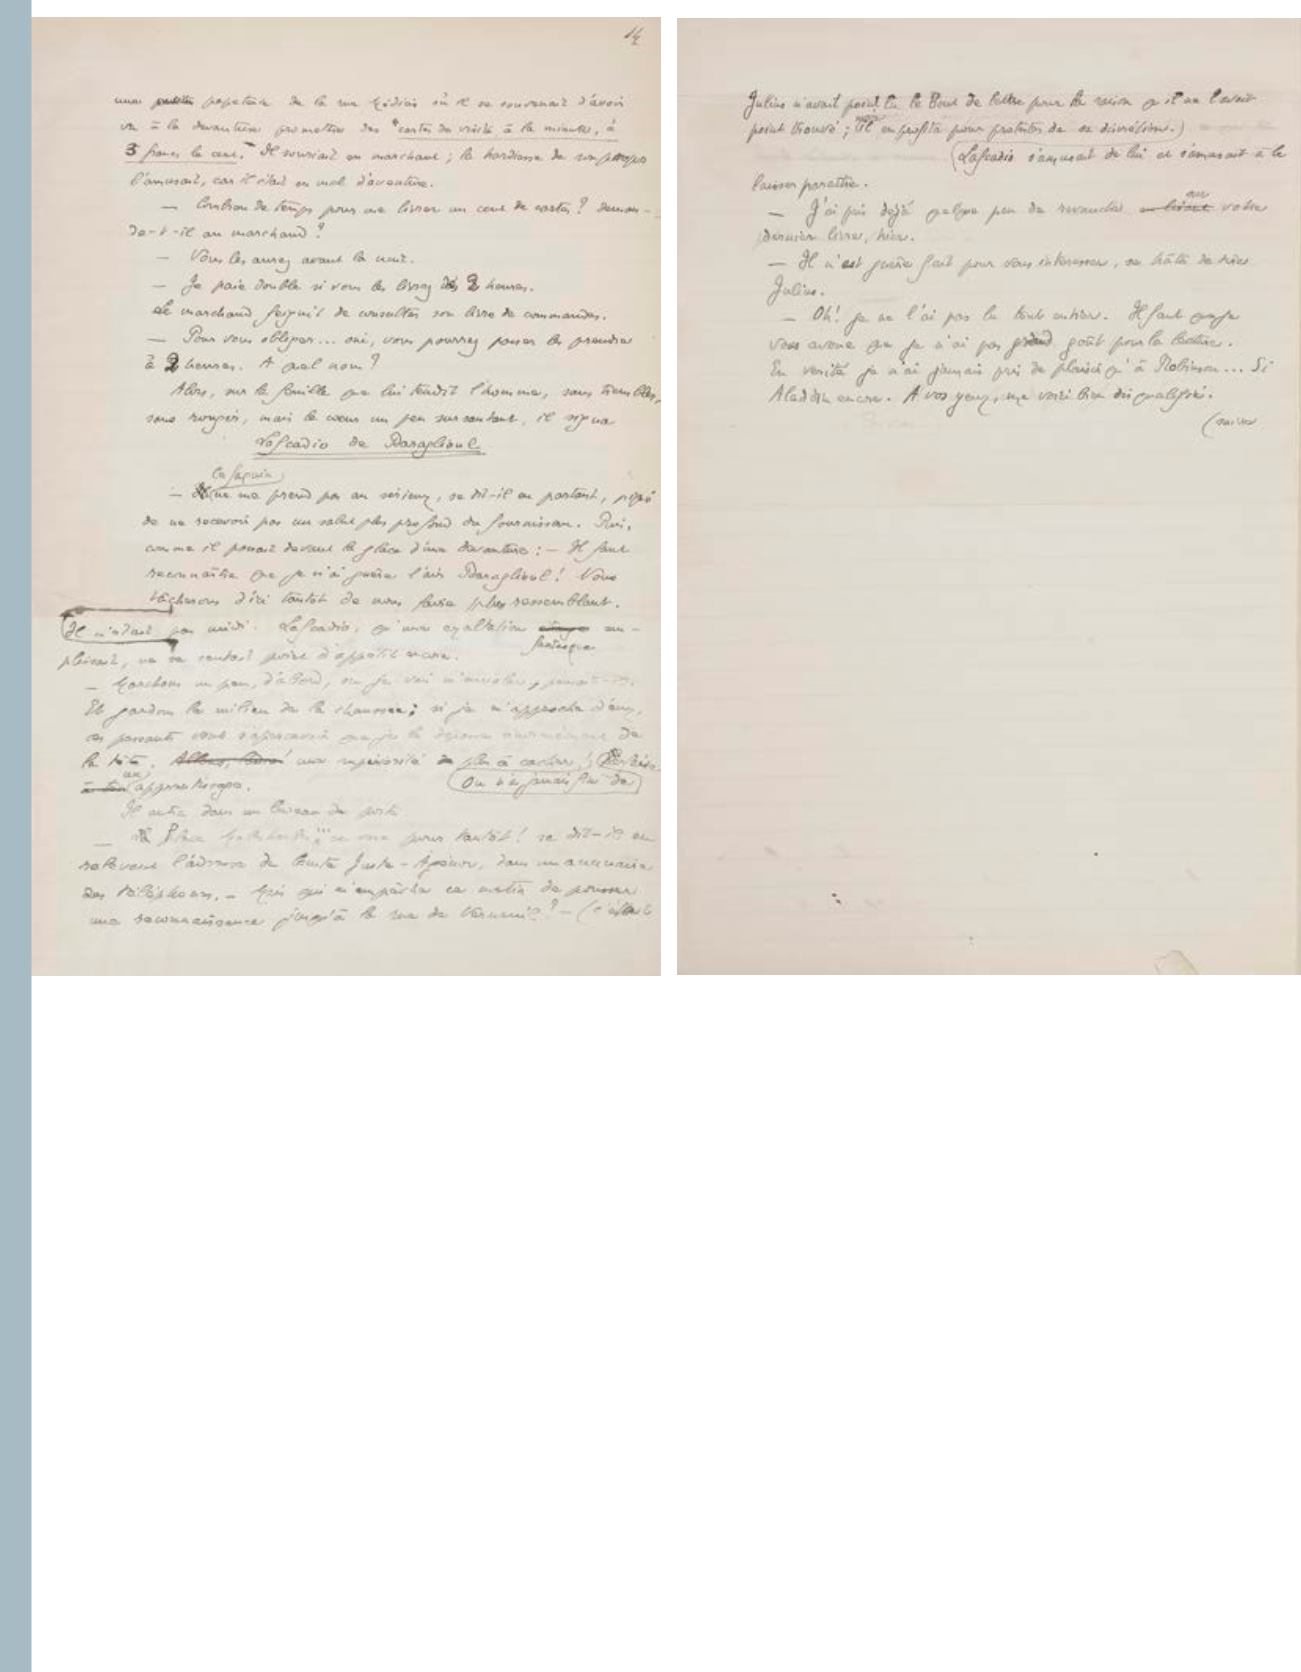 14
une petite papeterie de la rue Médicis où il se souvenait d'avoir
vu à la devanture promettre des "cartes de visite à la minute, à
3 francs le cent." Il souriait en marchant ; la hardiesse de son propos
l'amusait, car il était en mal d'aventure.
— Combien de temps pour me livrer un cent de cartes ? deman-
da-t-il au marchand ?
— Vous les aurez avant la nuit.
— Je paie double si vous les livrez dès 2 heures.
Le marchand feignit de consulter son livre de commandes.
— Pour vous obliger... oui, vous pourrez passer les prendre
à 2 heures. A quel nom ?
Alors, sur la feuille que lui tendit l'homme, sans trembler,
sans rougir, mais le cœur un peu sursautant, il signa
Lafcadio de Baraglioul
Ce faquin
— ne me prend pas au sérieux, se dit-il en partant, piqué
de ne recevoir pas un salut plus profond du fournisseur. Puis,
comme il passait devant la glace d'une devanture : — Il faut
reconnaître que je n'ai guère l'air Baraglioul ! Nous
tâcherons d'ici tantôt de nous faire plus ressemblant.
Il n'était pas midi. Lafcadio, qu'une exaltation em-
fantasque
plissait, ne se sentait point d'appétit encore.
— Marchons un peu, d'abord, ou je vais m'envoler, pensait-il.
Et gardons le milieu de la chaussée ; si je m'approche d'eux,
ces passants vont s'apercevoir que je les dépasse énormément de
la tête. une supériorité de plus à cacher !
un apprentissage. On n'a jamais fini de
Il entra dans un bureau de poste.
— Place Malesherbes... ce sera pour tantôt ! se dit-il en
relevant l'adresse du Comte Juste-Agénor, dans un annuaire
des téléphones. — Mais qui m'empêche ce matin de pousser
une reconnaissance jusqu'à la rue de Verneuil ? — (c'était
Julius n'avait point lu le bout de lettre pour la raison qu'il ne l'avait
point trouvé ; il en profita pour protester de sa discrétion.)
Lafcadio s'amusait de lui et s'amusait à le
laisser paraître.
au
— J'ai pris déjà quelque peu de revanche en lisant votre
dernier livre, hier.
— Il n'est guère fait pour vous intéresser, se hâta de dire
Julius.
— Oh ! je ne l'ai pas lu tout entier. Il faut que je
vous avoue que je n'ai pas grand goût pour la lecture.
En vérité je n'ai jamais pris de plaisir qu'à Robinson... Si
Aladdin encore. A vos yeux, me voici bien disqualifié.
(suite